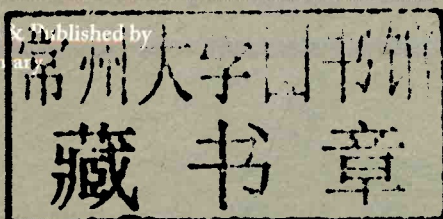 & Published by
常州大学图书馆
藏书章